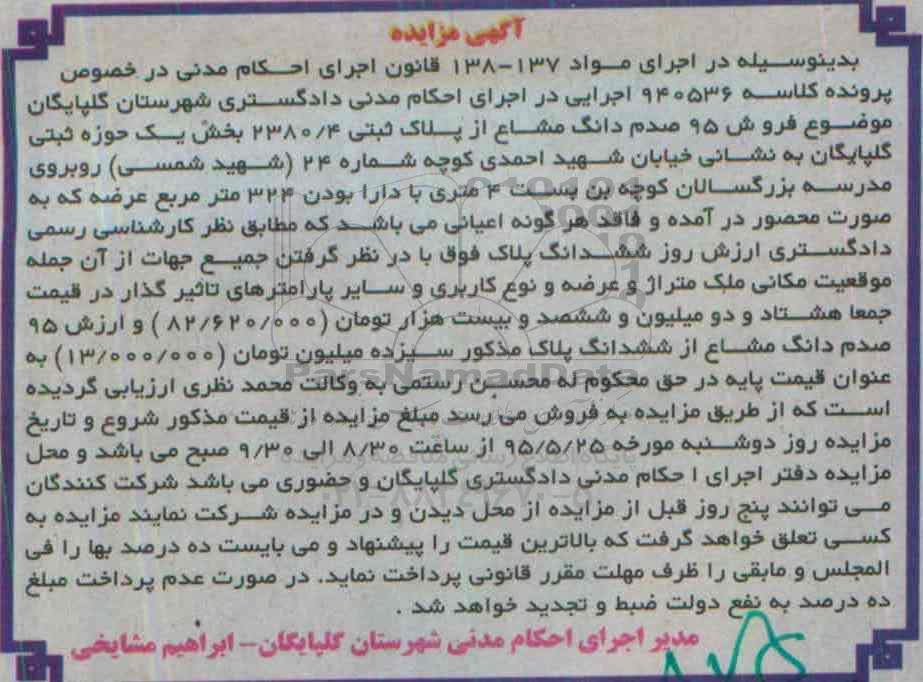 آگهی مزایده
بدینوسیله در اجرای مواد ۱۳۷-۱۳۸ قانون اجرای احکام مدنی در خصوص
پرونده کلاسه ۹۴۰۵۳۶ اجرایی در اجرای احکام مدنی دادگستری شهرستان گلپایگان
موضوع فرو ش ۹۵ صدم دانگ مشاع از پلاک ثبتی ۲۳۸۰/۴ بخش یک حوزه ثبتی
گلپایگان به نشانی خیابان شهید احمدی کوچه شماره ۲۴ (شهید شمسی) روبروی
مدرسه بزرگسالان کوچه بن بست ۴ متری با دارا بودن ۳۲۴ متر مربع عرضه که به
صورت محصور در آمده و فاقد هر گونه اعیانی می باشد که مطابق نظر کارشناسی رسمی
دادگستری ارزش روز ششدانگ پلاک فوق با در نظر گرفتن جمیع جهات از آن جمله
موقعیت مکانی ملک متراژ و عرضه و نوع کاربری و سایر پارامترهای تاثیر گذار در قیمت
جمعا هشتاد و دو میلیون و ششصد و بیست هزار تومان (۸۲/۶۲۰/۰۰۰) و ارزش ۹۵
صدم دانگ مشاع از ششدانگ پلاک مذکور سیزده میلیون تومان (۱۳/۰۰۰/۰۰۰) به
عنوان قیمت پایه در حق محکوم له محسن رستمی به وکالت محمد نظری ارزیابی گردیده
است که از طریق مزایده به فروش می رسد مبلغ مزایده از قیمت مذکور شروع و تاریخ
مزایده روز دوشنبه مورخه ۹۵/۵/۲۵ از ساعت ۸/۳۰ الی ۹/۳۰ صبح می باشد و محل
مزایده دفتر اجرای ا حکام مدنی دادگستری گلپایگان و حضوری می باشد شرکت کنندگان
می توانند پنج روز قبل از مزایده از محل دیدن و در مزایده شرکت نمایند مزایده به
کسی تعلق خواهد گرفت که بالاترین قیمت را پیشنهاد و می بایست ده درصد بها را فی
المجلس و مابقی را ظرف مهلت مقرر قانونی پرداخت نماید. در صورت عدم پرداخت مبلغ
ده درصد به نفع دولت ضبط و تجدید خواهد شد .
مدیر اجرای احکام مدنی شهرستان گلپایگان- ابراهیم مشایخی
ParsNamadData